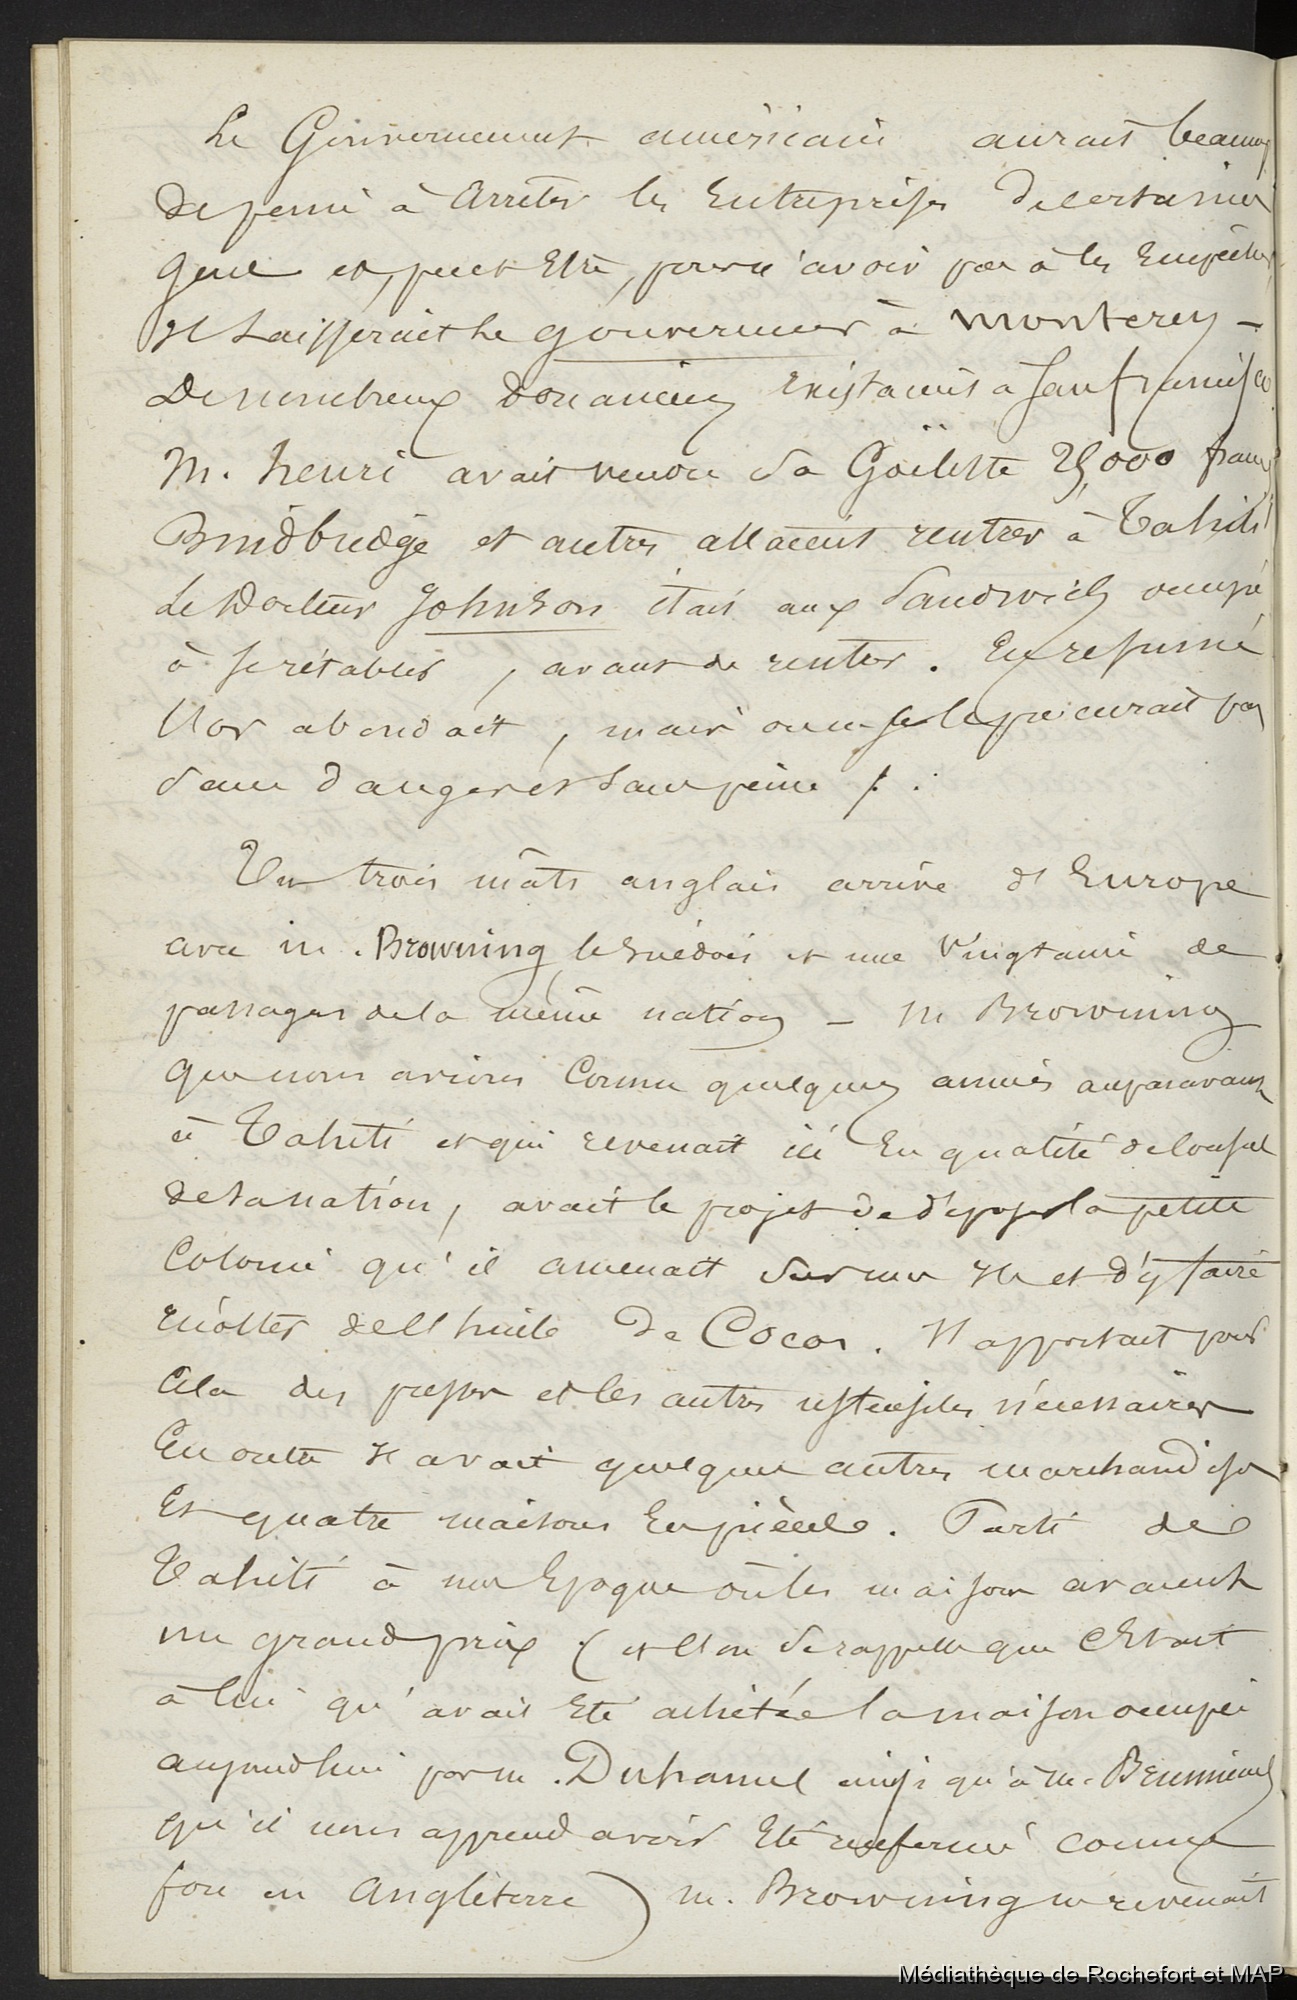 Le Gouvernement américain aurait beaucoup
de peine à Arrêter les Entreprises de certaines
gens et, peut Etre, pour n'avoir pas à les Empêcher
Il Laisserait le gouverneur à Monterey –
De nombreux douaniers Existaient à San francisco
M. henri avait vendu Sa Goëlette 25,000 francs
et autres allaient rentrer à Tahiti
Le Docteur Johnson était aux Sandwich occupé
à se rétablir, avant de rentrer. En resumé
l'or abondait, mais on ne se le procurait pas
Sans danger et Sans peine /.
Un trois mâts anglais arrive d'Europe
avec m. Browning le suédois et une Vingtaine de
passagers de la même nation – M Browning
que nous avions Connu quelques années auparavant
à Tahiti et qui revenait ici En qualité de Consul
de Sa nation, avait le projet de déposer la petite
Colonie qu'il amenait Sur une Ile et d'y faire
récolter de l'huile de Cocos. Il apportait pour
Cela des presses et les autres ustensiles nécessaires
En outre Il avait quelques autres marchandises
Et quatre maisons En pièces. Parti de
Tahiti à une Epoque où les maisons avaient
un grand prix (et l'on Se rappelle que C'Etait
à lui qu'avait Eté achetée la maison occupée
aujourd'hui par m. Duhamel ainsi qu'à M.
qu'il nous apprend avoir Eté renfermé comme
fou en Angleterre) m. Browning revenait
Médiathèque de Rochefort et MAP